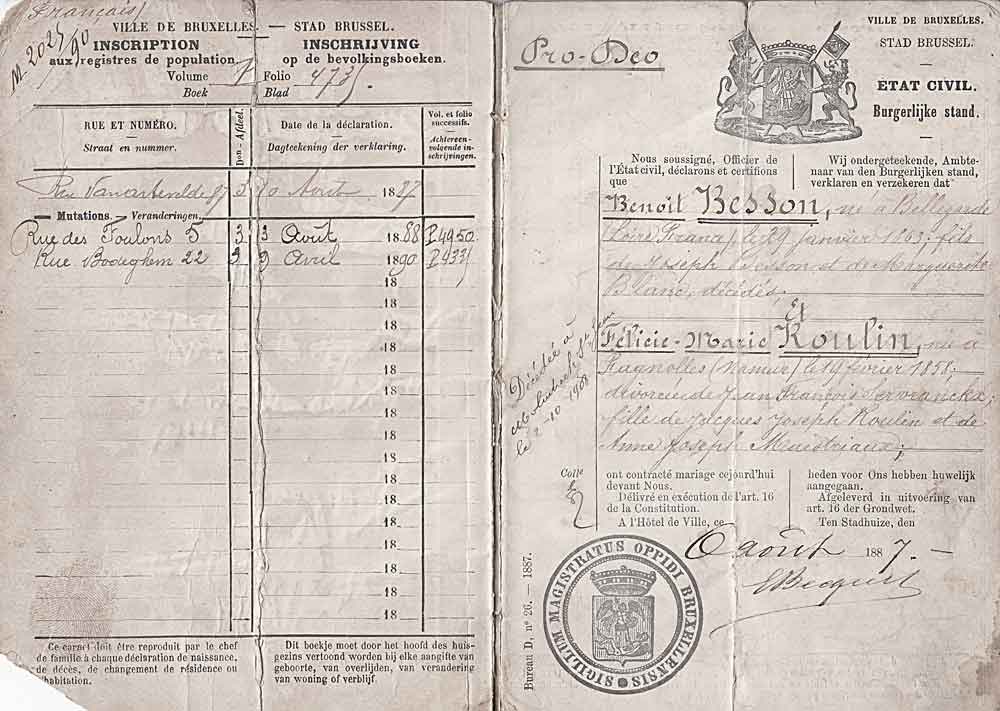 (Français)
M 2027/90
VILLE DE BRUXELLES. — STAD BRUSSEL.
INSCRIPTION INSCHRIJVING
aux registres de population. op de bevolkingsboeken.
Volume Folio 473
Boek Blad
RUE ET NUMÉRO.
Straat en nummer.
Don - Afdeel.
Date de la déclaration.
Dagteekening der verklaring.
Vol. et folio
successifs.
Achtereen-
volgende in-
schrijvingen.
Rue Vanartevelde 87 3 Août 1887
Mutations. — Veranderingen.
Rue des Foulons 5 3 3 Août 1888 P 4950
Rue Bodeghem 22 3 9 Avril 1890
18
18
18
18
18
18
18
18
18
18
18
18
18
18
18
18
Ce carnet doit être reproduit par le chef
de famille à chaque déclaration de naissance,
de décès, de changement de résidence ou
habitation.
Dit boekje moet door het hoofd des huis-
gezins vertoond worden bij elke aangifte van
geboorte, van overlijden, van verandering
van woning of verblijf.
Pro-Deo
VILLE DE BRUXELLES.
STAD BRUSSEL.
ÉTAT CIVIL.
Burgerlijke stand.
Nous soussigné, Officier de
l'État civil, déclarons et certifions
que
Wij ondergeteekende, Ambte-
naar van den Burgerlijken stand,
verklaren en verzekeren dat
Benoît Besson, né à Bellegarde
(Loire France) le 29 janvier 1863; fils
de Joseph Besson et de Marguerite
Blanc, décédés;
Et
Félicie-Marie Roulin, née à
(Namur) le 19 février 1858;
divorcée de Jean François Servranckx,
fille de Jacques Joseph Roulin et de
Anne Joseph
Décédée à
Molenbeek St Jean
le 2-10-1908
Colle
ont contracté mariage cejourd'hui
devant Nous.
Délivré en exécution de l'art. 16
de la Constitution.
A l'Hôtel de Ville, ce
heden voor Ons hebben huwelijk
aangegaan.
Afgeleverd in uitvoering van
art. 16 der Grondwet.
Ten Stadhuize, den
août 1887. -
SIGILLUM MAGISTRATUS OPPIDI BRUXELLENSIS
Bureau D, n° 26. — 1887.